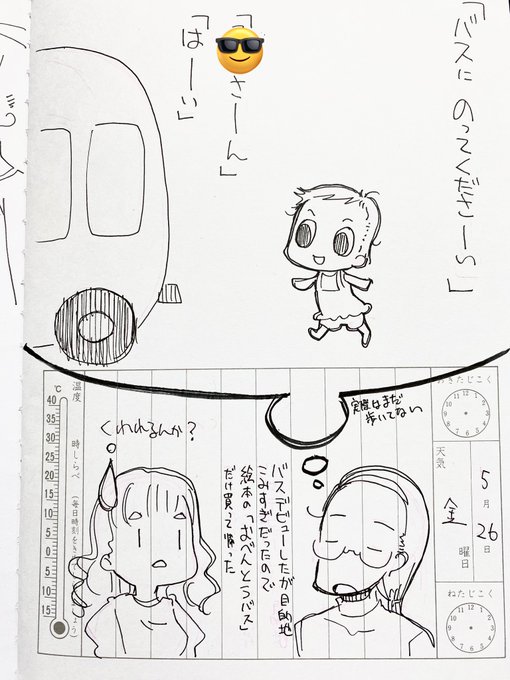 「バスに のってくださーい」
「さーん」
「はーい」
実際はまだ
歩いてない
おきたじこく
天気
5月26日
金曜日
ねたじこく
バスデビューしたが目的地
こみすぎだったので
絵本の「おべんとうバス」
だけ買って帰った
くわれるんか？
温度 時しらべ（毎日時刻をき
℃
40
35
30
25
20
15
10
5
0
5
10
15